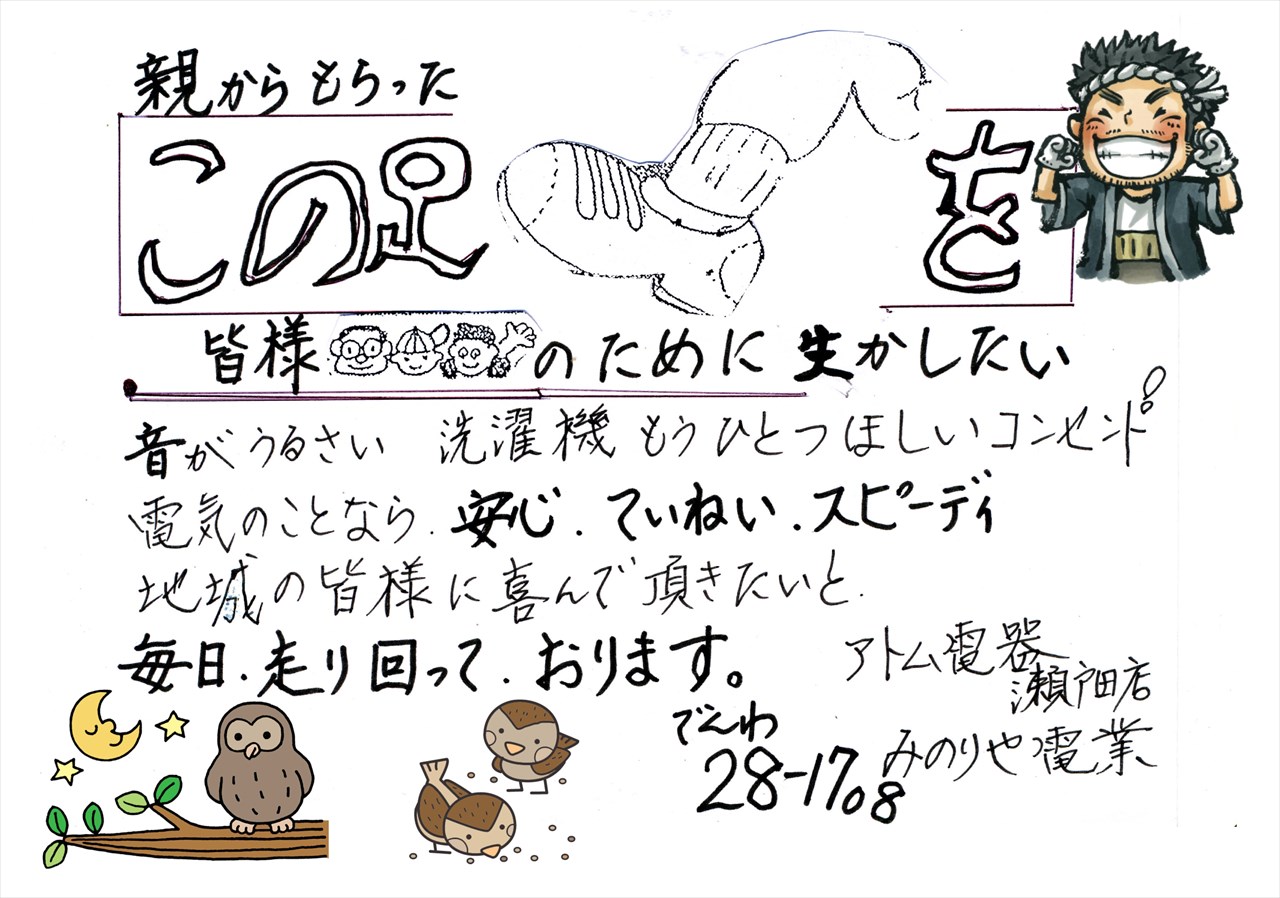 親からもらった
この足を
皆様のために生かしたい
音がうるさい 洗濯機 もうひとつほしいコンセント
電気のことなら.安心.ていねい.スピーディ
地城の皆様に喜んで頂きたいと.
毎日.走り回って.おります。
アトム電器
瀬戸田店
みのりや電業
でんわ
28-1708